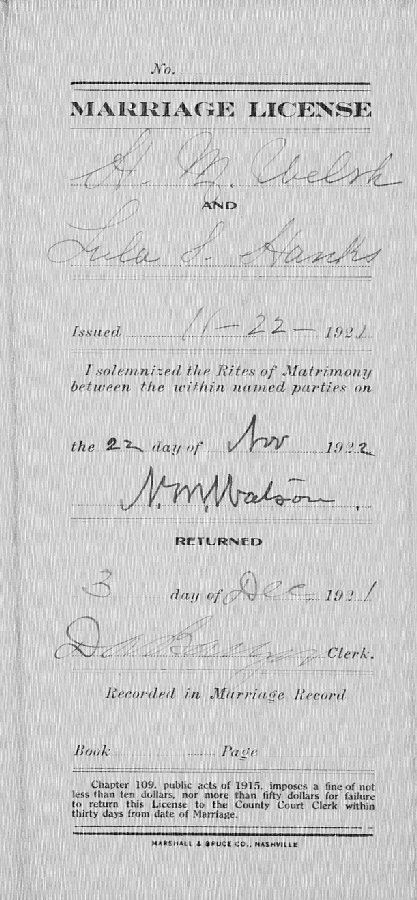 No.
MARRIAGE LICENSE
H. M. Welsh
AND
Lula S. Hanks
Issued 11-22- 1921
I solemnized the Rites of Matrimony
between the within named parties on
the 22 day of Nov 1922
N. M. Watson.
RETURNED
3 day of Dec 1921
Clerk.
Recorded in Marriage Record
Book Page
Chapter 109, public acts of 1915, imposes a fine of not
less than ten dollars, nor more than fifty dollars for failure
to return this License to the County Court Clerk within
thirty days from date of Marriage.
MARSHALL & BRUCE CO., NASHVILLE